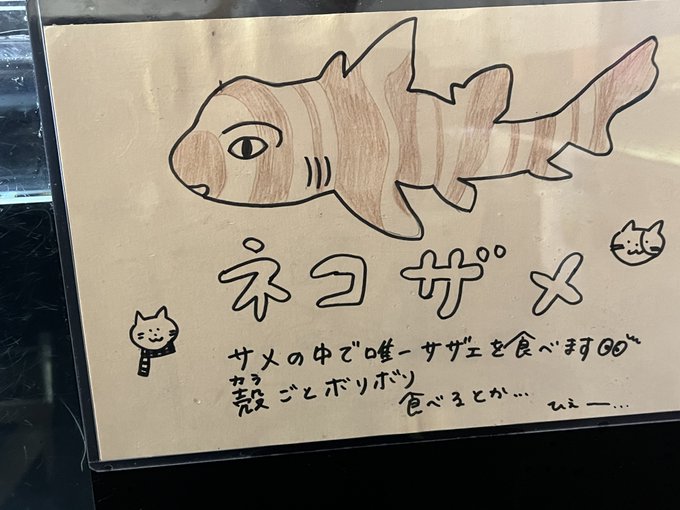 ネコザメ
サメの中で唯一サザエを食べます
カラ
殻ごとボリボリ
食べるとか…
ひぇー…